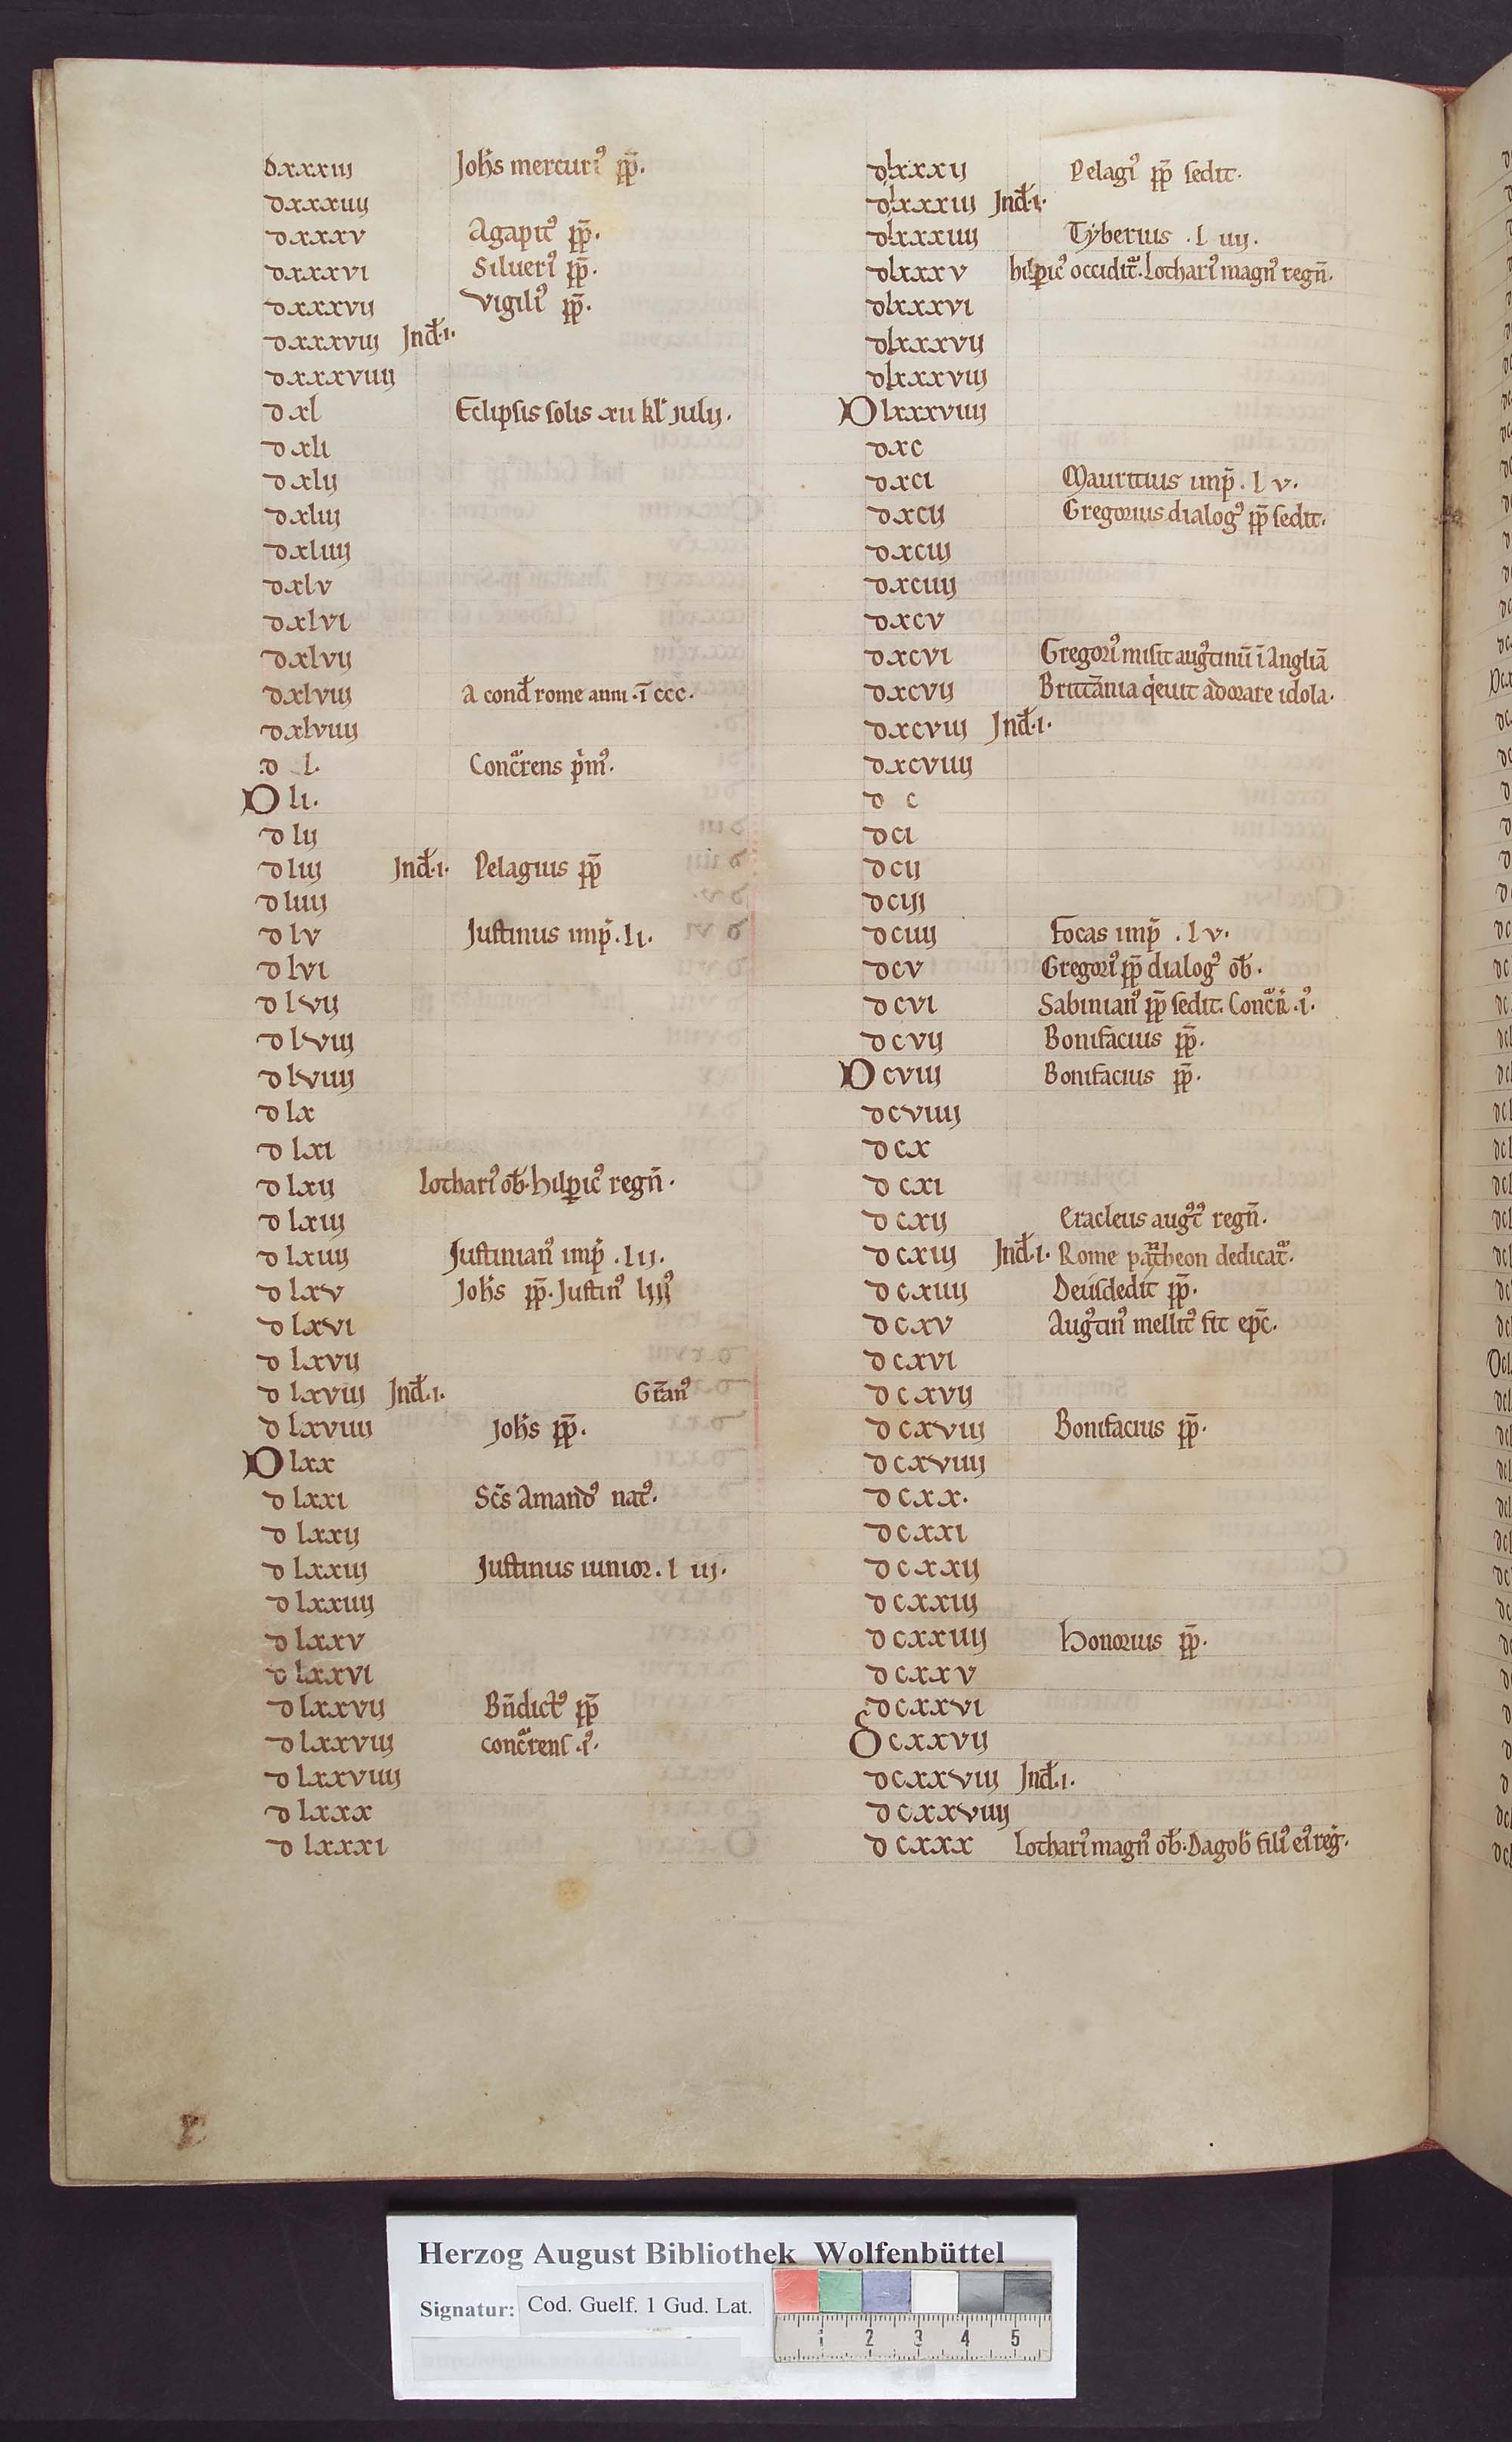 dxxxiij Joħs mercuri᷒ pp̄.
dxxxiiij
dxxxv Agapit᷒ pp̄.
dxxxvi Silueri᷒ pp̄.
dxxxvij Vigili᷒ pp̄.
dxxxviij Jnd̵.i.
dxxxviiij
dxl Eclipsis solis xii kl̄ julij.
dxli
dxlij
dxliij
dxliiij
dxlv
dxlvi
dxlvij
dxlviij a cond̵ rome anni .ī ccc.
dxlviiij
d l. Conc̄rens p̄m᷒.
D li.
d lij
d liij Jnd̵.i. Pelagius pp̄
d liiij
d lv Justinus imp̄. li.
d lvi
d lvij
d lviij
d lviiij
d lx
d lxi
d lxij Lothari᷒ ob̵. hilꝑic᷒ regn̄.
d lxiij
d lxiiij Justinian᷒ imp̄ .lij.
d lxv Joħs pp̄. Justin᷒ liij᷒
d lxvi
d lxvij
d lxviij Jnd̵.i. Gr̄an᷒
d lxviiij Joħs pp̄.
D lxx
d lxxi Sc̄s Amand᷒ nat᷒.
d lxxij
d lxxiij Justinus iunior. l iij.
d lxxiiij
d lxxv
d lxxvi
d lxxvij Bn̄dict᷒ pp̄
d lxxviij conc̄rens .i᷒.
d lxxviiij
d lxxx
d lxxxi
dlxxxij Pelagi᷒ pp̄ sedit.
dlxxxiij Jnd̵.i.
dlxxxiiij Tyberius .l iiij.
dlxxxv hilꝑic᷒ occidit᷑. Lothari᷒ magn᷒ regn̄.
dlxxxvi
dlxxxvij
dlxxxviij
D lxxxviiij
dxc
dxci Mauritius imp̄. l v.
dxcij Gregorius dialog᷒ pp̄ sedit.
dxciij
dxciiij
dxcv
dxcvi Gregori᷒ misit aug᷒tinū ī Angliā
dxcvij Brittānia q̇euit adorare idola.
dxcviij Jnd̵.i.
dxcviiij
d c
dci
dcij
dciij
dciiij Focas imp̄ .l v.
dcv Gregori᷒ pp̄ dialog᷒ ob̵.
dcvi Sabinian᷒ pp̄ sedit. Conc̄r̄ .i᷒.
dcvij Bonifacius pp̄.
D cviij Bonifacius pp̄.
dcviiij
dcx
d cxi
dcxij Eracleus aug᷒t᷒ regn̄.
dcxiij Jnd̵.i. Rome pantheon dedicat᷑.
dcxiiij Deusdedit pp̄.
dcxv Aug᷒tin᷒ mellit᷒ fit ep̄c.
dcxvi
dcxvij
dcxviij Bonifacius pp̄.
dcxviiij
dcxx.
dcxxi
dcxxij
dcxxiij
dcxxiiij Honorius pp̄.
dcxxv
dcxxvi
D cxxvij
dcxxviij Jnd̵.i.
dcxxviiij
dcxxx Lothari᷒ magn᷒ ob̵. Dagob̄ fili᷒ ei᷒ reḡ.
Herzog August Bibliothek Wolfenbüttel
Signatur: Cod. Guelf. 1 Gud. Lat.
1 2 3 4 5